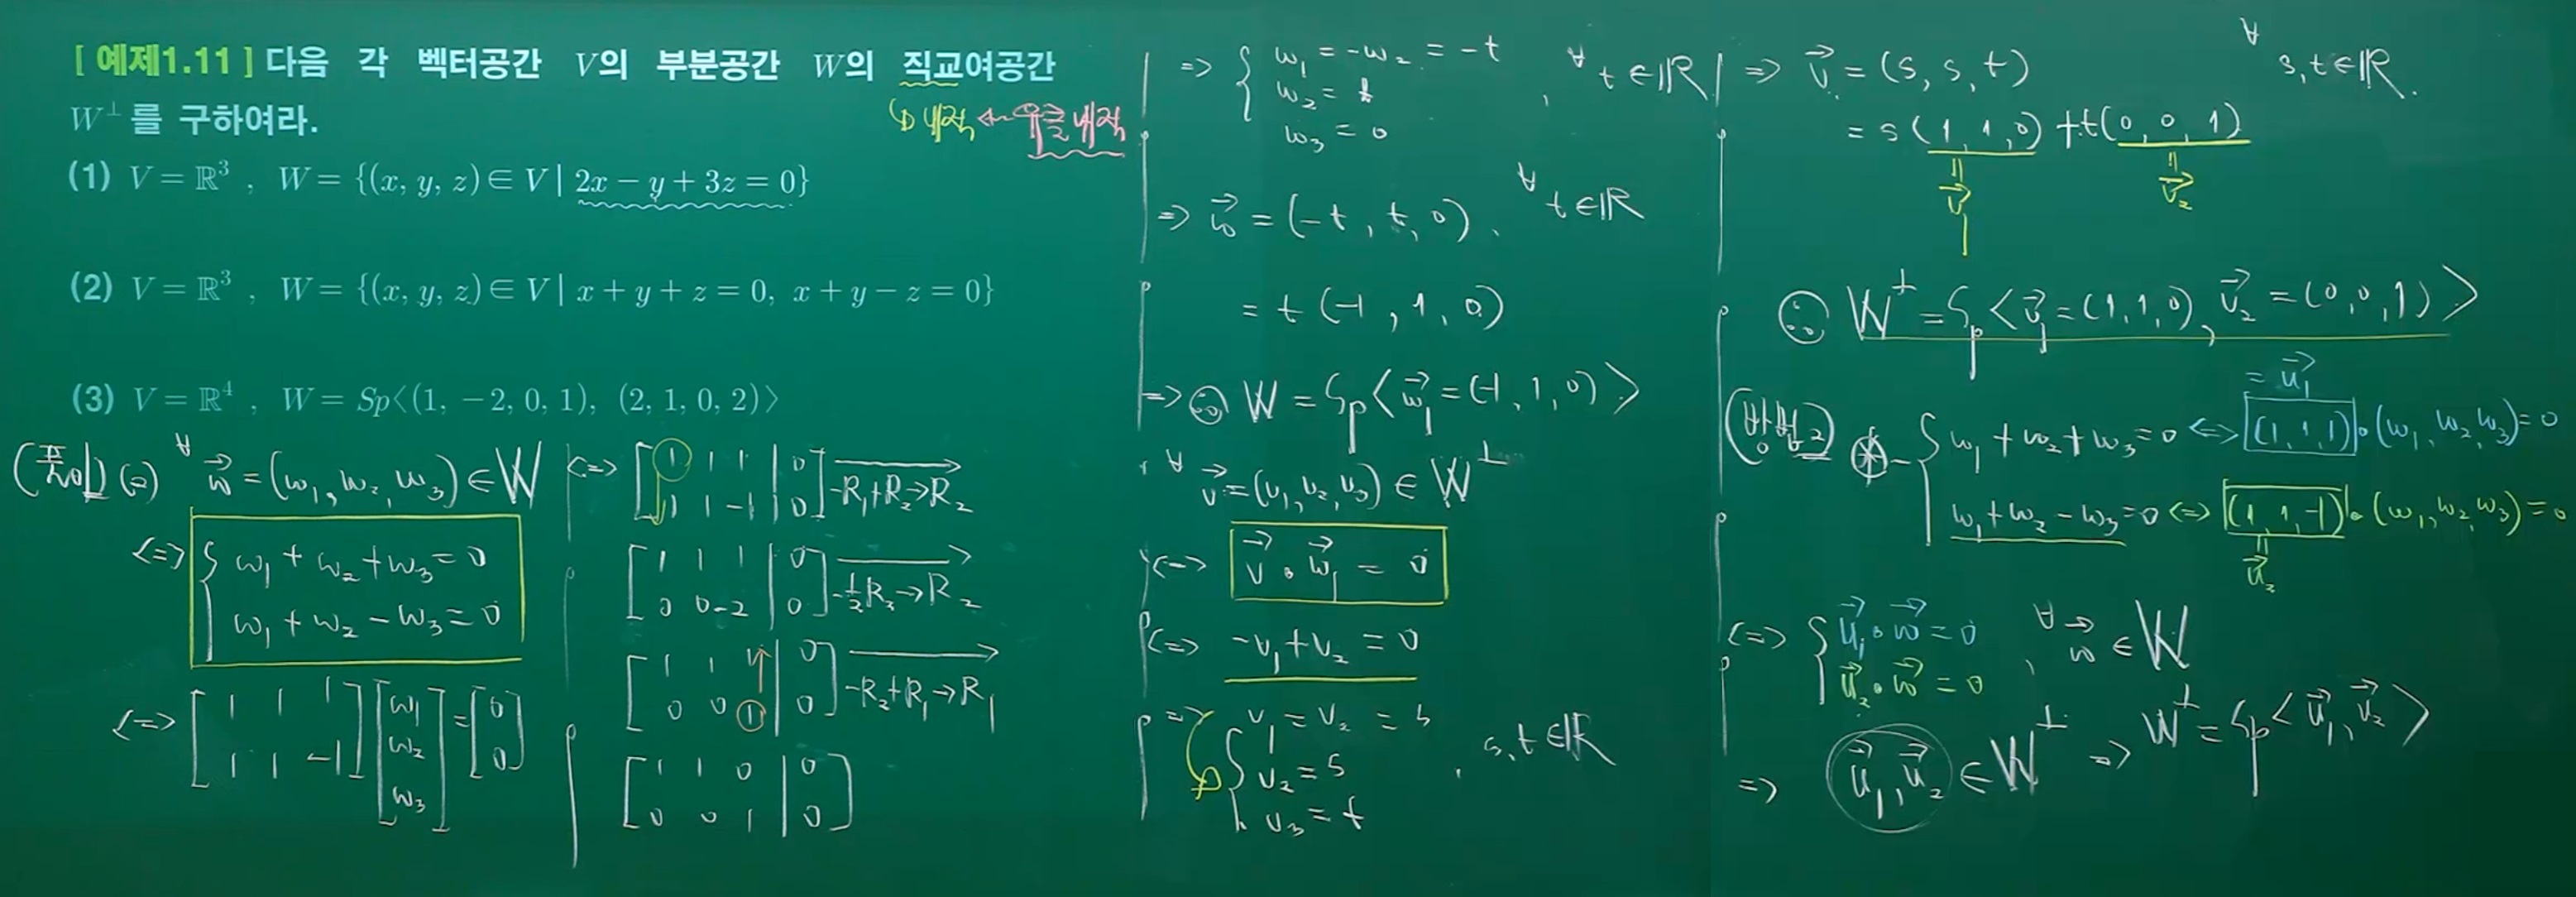 [ 예제1.11 ] 다음 각 벡터공간 V의 부분공간 W의 직교여공간
W⊥를 구하여라.
내적 ← 유클 내적
(1) V = ℝ³ , W = {(x, y, z) ∈ V | 2x − y + 3z = 0}
(2) V = ℝ³ , W = {(x, y, z) ∈ V | x + y + z = 0, x + y − z = 0}
(3) V = ℝ⁴ , W = Sp⟨(1, −2, 0, 1), (2, 1, 0, 2)⟩
(풀이) (2) ∀ w⃗ = (w₁, w₂, w₃) ∈ W
<=> { w₁ + w₂ + w₃ = 0
w₁ + w₂ − w₃ = 0
<=> [1 1 1; 1 1 −1] [w₁; w₂; w₃] = [0; 0]
<=> [1 1 1 | 0; 1 1 −1 | 0] −R₁+R₂→R₂
[1 1 1 | 0; 0 0 −2 | 0] −½R₂→R₂
[1 1 1 | 0; 0 0 1 | 0] −R₂+R₁→R₁
[1 1 0 | 0; 0 0 1 | 0]
=> { w₁ = −w₂ = −t
w₂ = t , ∀ t ∈ ℝ
w₃ = 0
=> w⃗ = (−t, t, 0), ∀ t ∈ ℝ
= t (−1, 1, 0)
=> ∴ W = Sp⟨ w⃗₁ = (−1, 1, 0) ⟩
∀ v⃗ = (v₁, v₂, v₃) ∈ W⊥
<=> v⃗ ∘ w⃗₁ = 0
<=> −v₁ + v₂ = 0
=> { v₁ = v₂ = s
v₂ = s , s, t ∈ ℝ
v₃ = t
=> v⃗ = (s, s, t) ∀ s, t ∈ ℝ.
= s (1, 1, 0) + t (0, 0, 1)
= v⃗₁ = v⃗₂
∴ W⊥ = Sp⟨ v⃗₁ = (1, 1, 0), v⃗₂ = (0, 0, 1) ⟩
= u⃗₁
(방법2) ⊛ { w₁ + w₂ + w₃ = 0 <=> (1, 1, 1) ∘ (w₁, w₂, w₃) = 0
w₁ + w₂ − w₃ = 0 <=> (1, 1, −1) ∘ (w₁, w₂, w₃) = 0
= u⃗₂
<=> { u⃗₁ ∘ w⃗ = 0
u⃗₂ ∘ w⃗ = 0 , ∀ w⃗ ∈ W
=> u⃗₁, u⃗₂ ∈ W⊥ => W⊥ = Sp⟨ u⃗₁, u⃗₂ ⟩